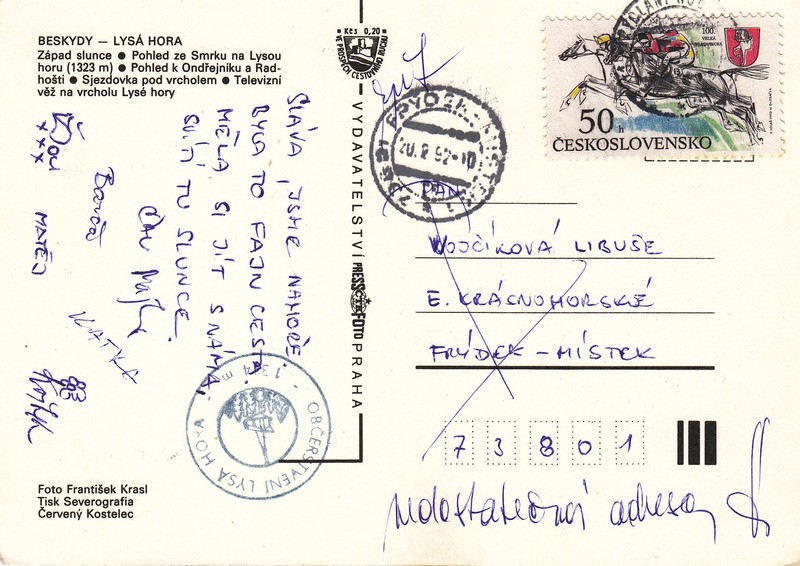 BESKYDY — LYSÁ HORA
Západ slunce ● Pohled ze Smrku na Lysou
horu (1323 m) ● Pohled k Ondřejníku a Rad-
hošti ● Sjezdovka pod vrcholem ● Televizní
věž na vrcholu Lysé hory
Kčs 0,20
VE PROSPĚCH CESTOVNÍHO RUCHU
SLÁVA, JSME NAHOŘE.
BYLA TO FAJN CESTA.
MĚLA SI JÍT S NÁMA,
SVÍTÍ TU SLUNCE.
ČAU
MATĚJ
KATKA
OBČERSTVENÍ LYSÁ HORA
VYDAVATELSTVÍ PRESSFOTO PRAHA
FRÝDEK-MÍSTEK 1
100.
VELKÁ PARDUBICKÁ
50 h
ČESKOSLOVENSKO
PANÍ
VOJČÍKOVÁ LIBUŠE
E. KRÁSNOHORSKÉ
FRÝDEK – MÍSTEK
73801
nedostatečná adresa
Foto František Krasl
Tisk Severografia
Červený Kostelec